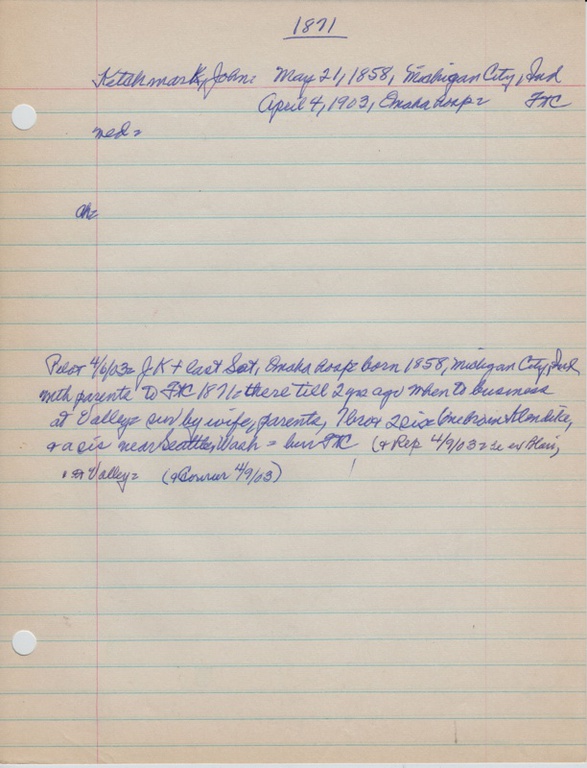 1871
Ketchmark, John= May 21, 1858, Michigan City, Ind
April 4, 1903, Omaha hosp= FtC
med=
ch=
Pilot 4/6/03= J K + last Sat, Omaha hosp= born 1858, Michigan City, Ind,
with parents to FtC 1871= there till 2 yrs ago when to business
at Valley= sur by wife, parents, 1 bro + 2 sis= One bro in Klondike,
+ a sis near Seattle, Wash = bur FtC (+ Rep 4/9/03= Blair,
Valley= (+ Courier 4/9/03)